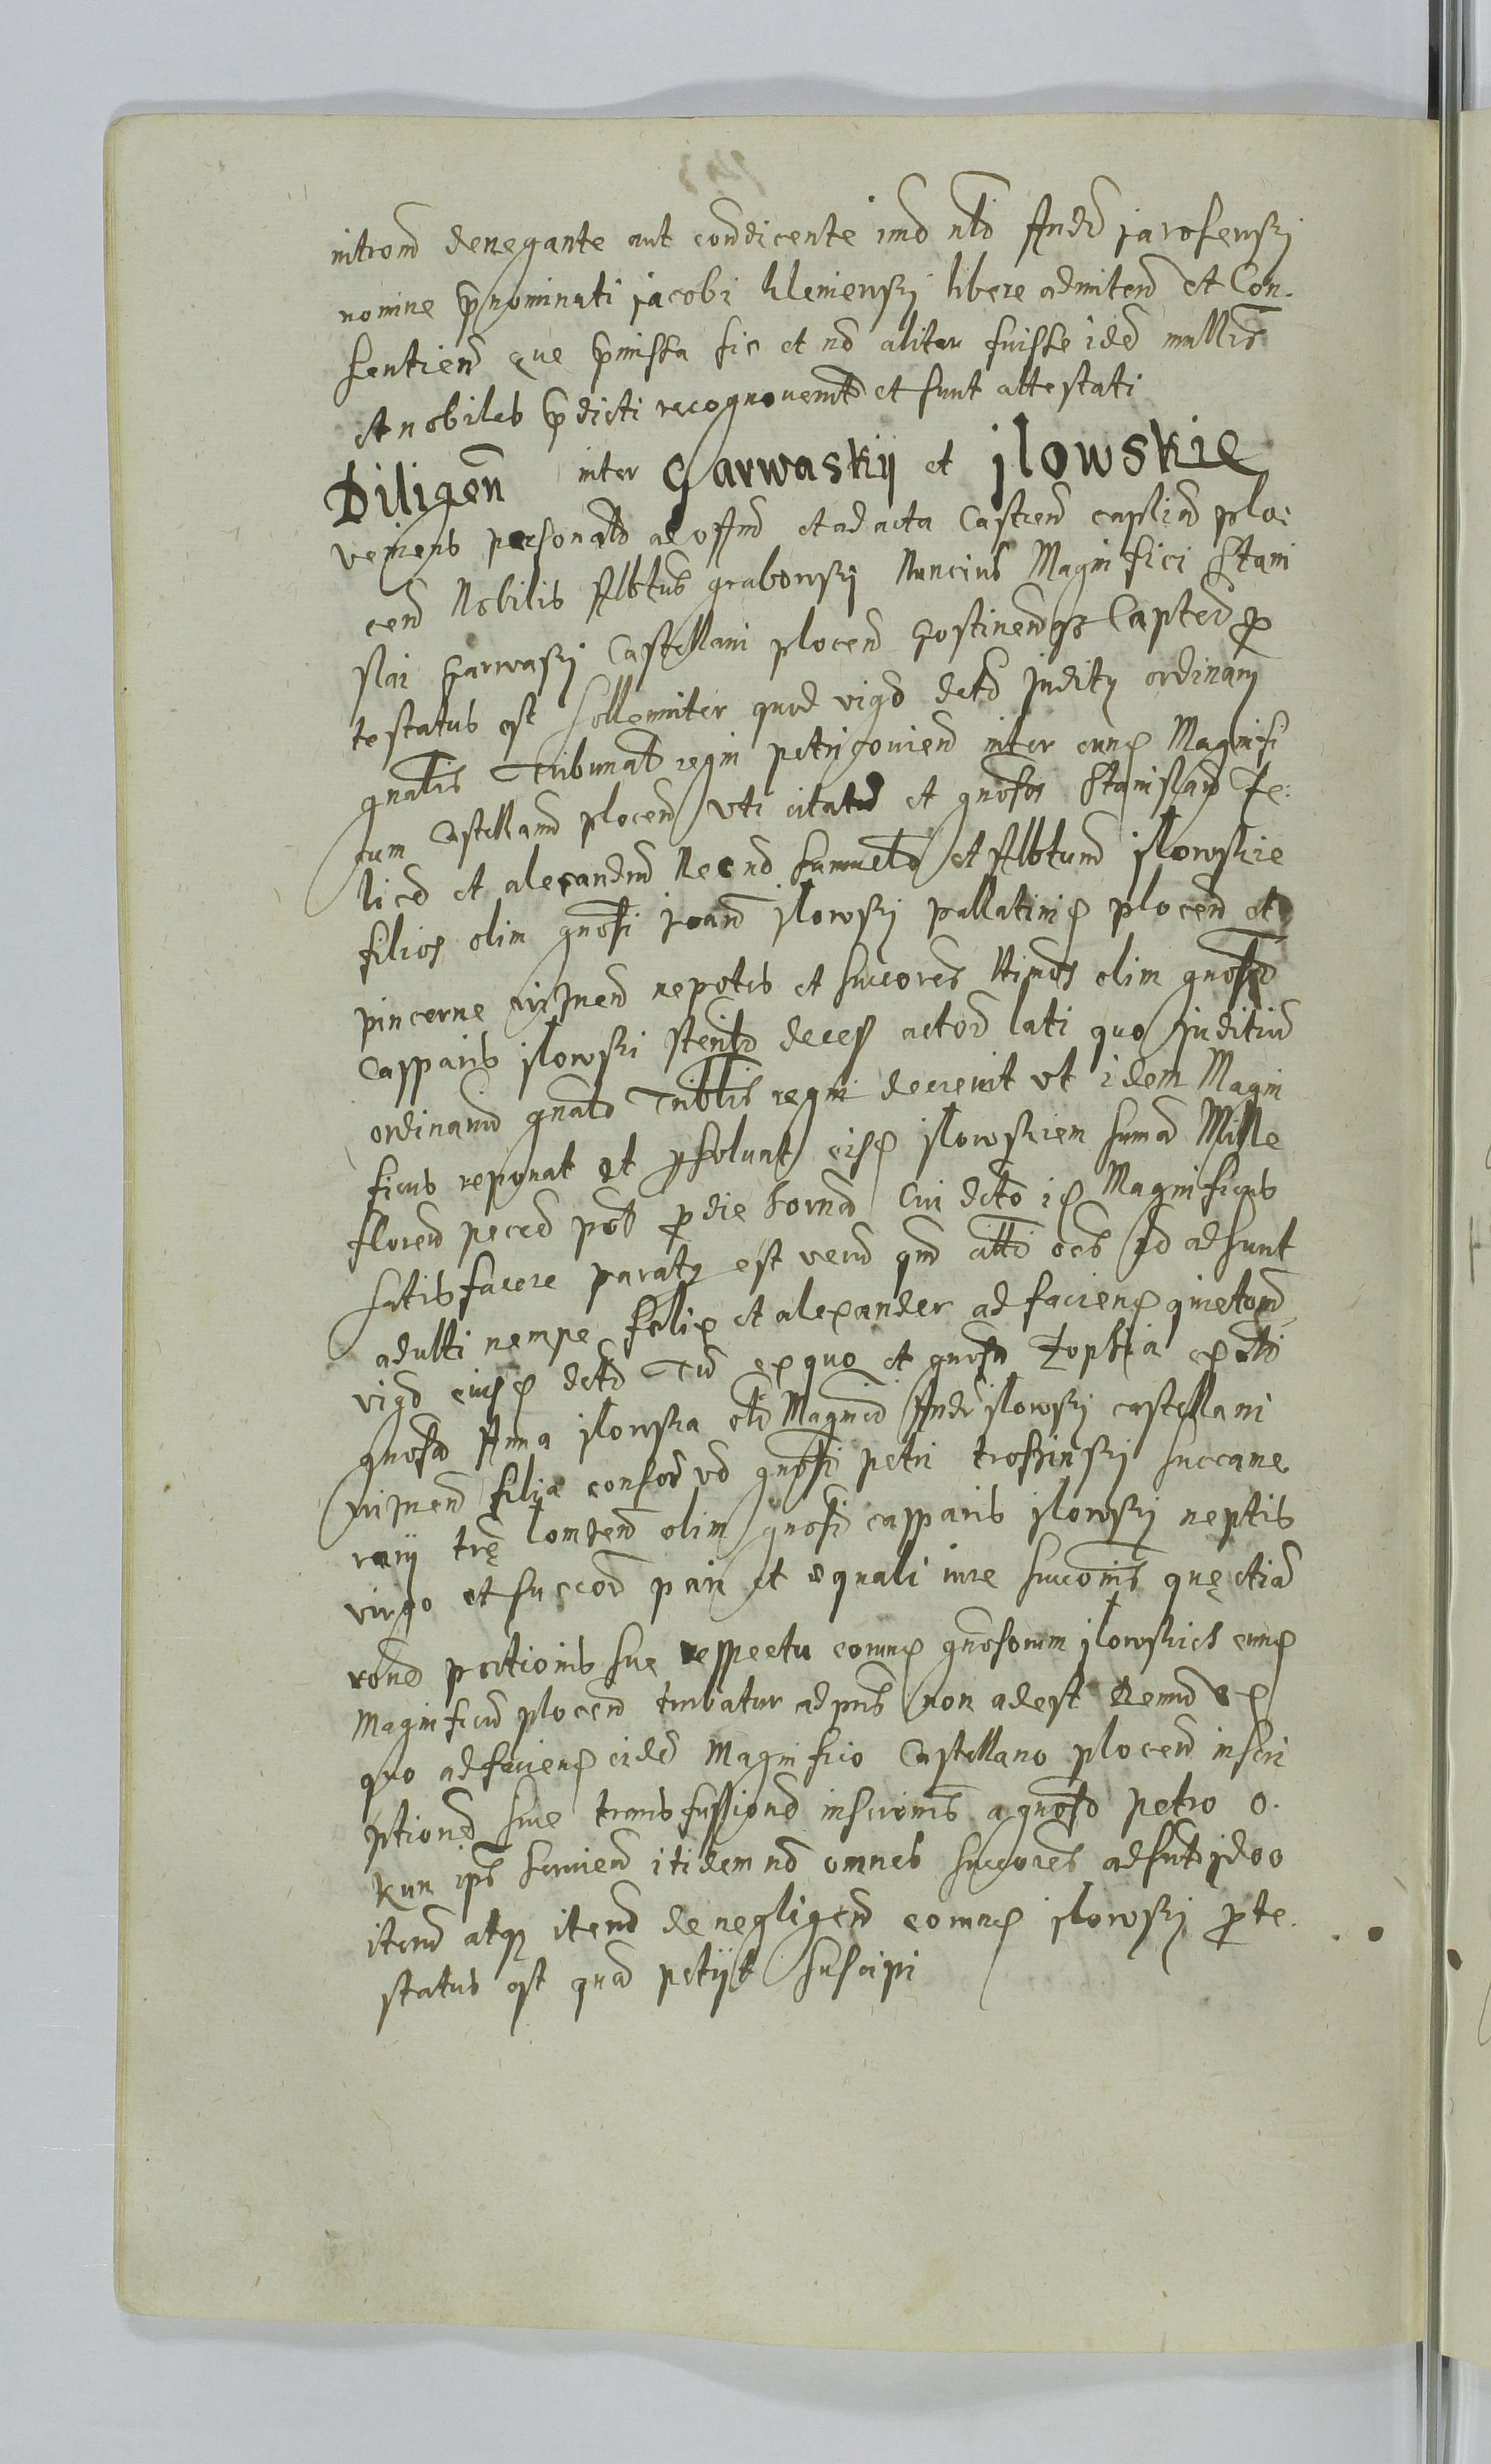 introm denegante aut condicente imo nlo Andr jarosewskj
nomine pnominati jacobi kleniewskj libere admitten et Con.
sentien que pmissa sic et no aliter fuisse idem
et nobiles pdicti recognoverut et sunt attestati
Diligen inter Garwaskij et jlowskie
veniens personalr ad offm et ad acta Castren capitlia plo:
cen Nobilis Albtus grabowskj Nuncius Magnifici Stani
slai Garwaskj Castellani plocen Gostinen Capitei pro
testatus est sollenniter quod vigo deti juditij ordinarij
gnalis Tribunal regni petricovien inter eunq Magnifi
cum Castellanu plocen uti citatu et gnosos Stanislau Fe:
lice et alexandru Necno Samuele et Albtum jlowskie
filios olim gnosi joan jlowskj pallatini plocen et
pincerne nepotes et succores olim gnosi
Casparis jlowskj deces actor lati quo juditiu
ordinariu gnale Triblis regni decrevit ut idem Magni
ficus reponat et psolvat eisq jlowskiem suma Mille
floren pecco pol pro die horna Cui deto iq Magnificus
satisfacere paratq est veru qm alti oes no adsunt
adulti nempe felix et alexander ad facienq quietom
vigo eiusq deti Tu ex quo et gnosa Zophia
gnosa Anna jlowska oli Magnici Andr jlowskj castellani
filia consor vo gnosi petri troskinskj succame
rarij tre lomzen olim gnosi casparis jlowskj neptis
virgo et succor pari et equali iure succonis que etia
rone portionis sue respectu eorunq gnosorum jlowskich eunq
Magnificu plocen turbatur ad pns non adest demu ex
quo ad facienq eide Magnifico Castellano plocen inscri
ptione sive transfussione inscronis a gnoso petro o.
kun ips servien itidem no omnes succores adsut jdeo
iteru atq iteru de negligen eorunq jlowskj prote.
status est qua petijt suscipi